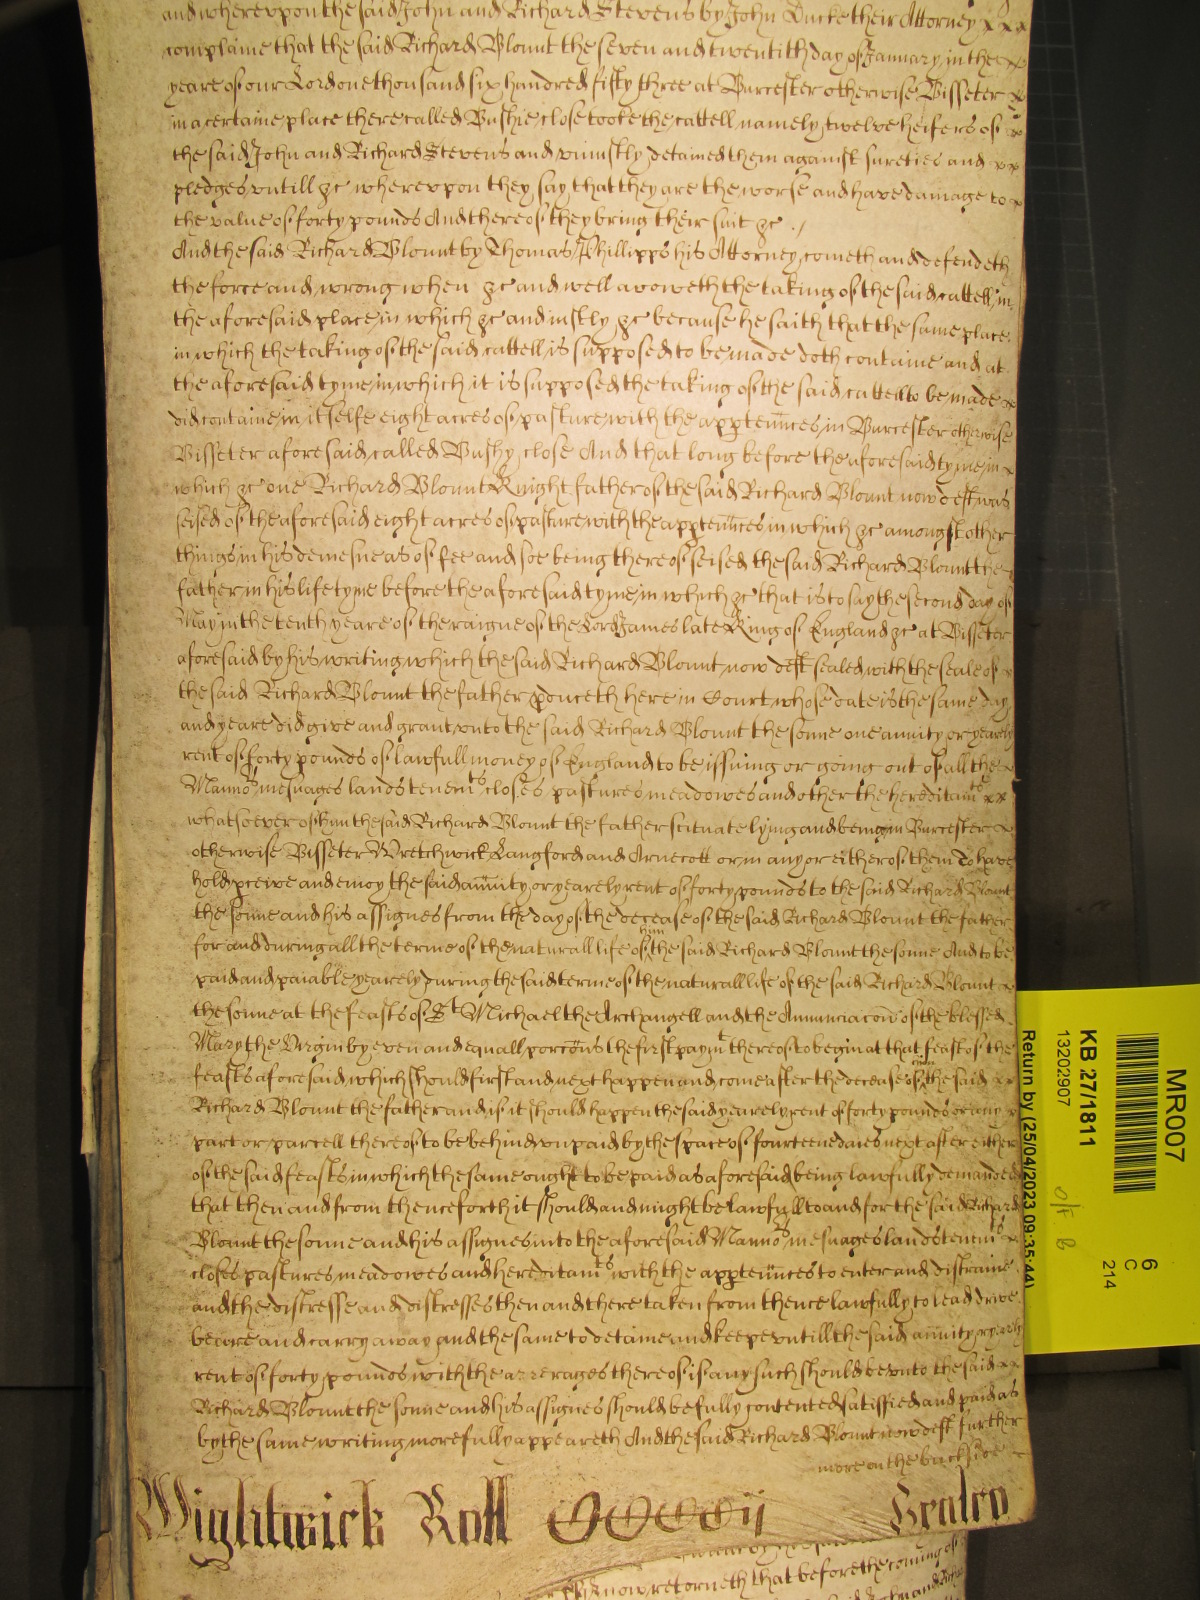 and wherevpon the said John and Richard Stevens by John Ducke their Attorney
complaine that the said Richard Blount the seven and twentith day of January in the
yeare of our Lord one thousand six hundred fifty three at Burcester otherwise Bisseter
in a certaine place there called Bushie close tooke the cattell namely twelve heifers of
the said John and Richard Stevens and vniustly detained them against sureties and
pledges vntill &c wherevpon they say that they are the worse and have damage to
the value of forty pounds And thereof they bring their suit &c
And the said Richard Blount by Thomas Phillipps his Attorney cometh and defendeth
the force and wrong when &c and well avoweth the taking of the said cattell in
the aforesaid place in which &c and iustly &c because he saith that the same place
in which the taking of the said cattell is supposed to be made doth containe and at
the aforesaid tyme in which it is supposed the taking of the said cattell to be made
did containe in it selfe eight acres of pasture with the apptennces in Burcester otherwise
Bisseter aforesaid called Bushy close And that long before the aforesaid tyme in
which &c one Richard Blount Knight father of the said Richard Blount now deft was
seised of the aforesaid eight acres of pasture with the apptennces in which &c amongst other
things in his demesne as of fee and soe being thereof seised the said Richard Blount the
father in his life tyme before the aforesaid tyme in which &c that is to say the second day of
May in the tenth yeare of the raigne of the Lord James late King of England &c at Bisseter
aforesaid by his writing which the said Richard Blount now deft sealed with the seale of
the said Richard Blount the father pduceth here in Court whose date is the same day
and yeare did give and grant vnto the said Richard Blount the sonne one annuity or yearely
rent of forty pounds of lawfull money of England to be issuing or going out of all the
Mannors mesuages lands tenemts closes pastures meadowes and other the hereditamts
whatsoever of him the said Richard Blount the father scituate lying and being in Burcester
otherwise Bisseter Wretchwick Langford and Arnecott or in any or either of them To have
hold pceive and enioy the said annuity or yearely rent of forty pounds to the said Richard Blount
the sonne and his assignes from the day of the decease of the said Richard Blount the father
for and during all the terme of the naturall life of him the said Richard Blount the sonne And to be
paid and paiable yearely during the said terme of the naturall life of the said Richard Blount
the sonne at the feasts of St Michael the Archangell and the Annunciacon of the blessed
Mary the Virgin by even and equall porcons the first paymt thereof to begin at that feast of the
feasts aforesaid which should first and next happen and come after the decease of him the said
Richard Blount the father and if it should happen the said yearely rent of forty pounds or any
part or parcell thereof to be behind vnpaid by the space of fourteene daies next after either
of the said feasts in which the same ought to be paid as aforesaid being lawfully demanded
that then and from thenceforth it should and might be lawfull to and for the said Richard
Blount the sonne and his assignes into the aforesaid Mannors mesuages lands tenemts
closes pastures meadowes and hereditamts with the apptennces to enter and distraine
and the distresse and distresses then and there taken from thence lawfully to lead drive
beare and carry away and the same to detaine and keepe vntill the said annuity or yearly
rent of forty pounds with the arrerages thereof if any such should be vnto the said
Richard Blount the sonne and his assignes should be fully contented satisfied and paid as
by the same writing more fully appeareth And the said Richard Blount now deft further
more on the backside
Wightwick Roll
now retorneth that before the coming of
MR007
KB 27/1811
13202907
Return by (25/04/2023 09:35:44)
6
C
214